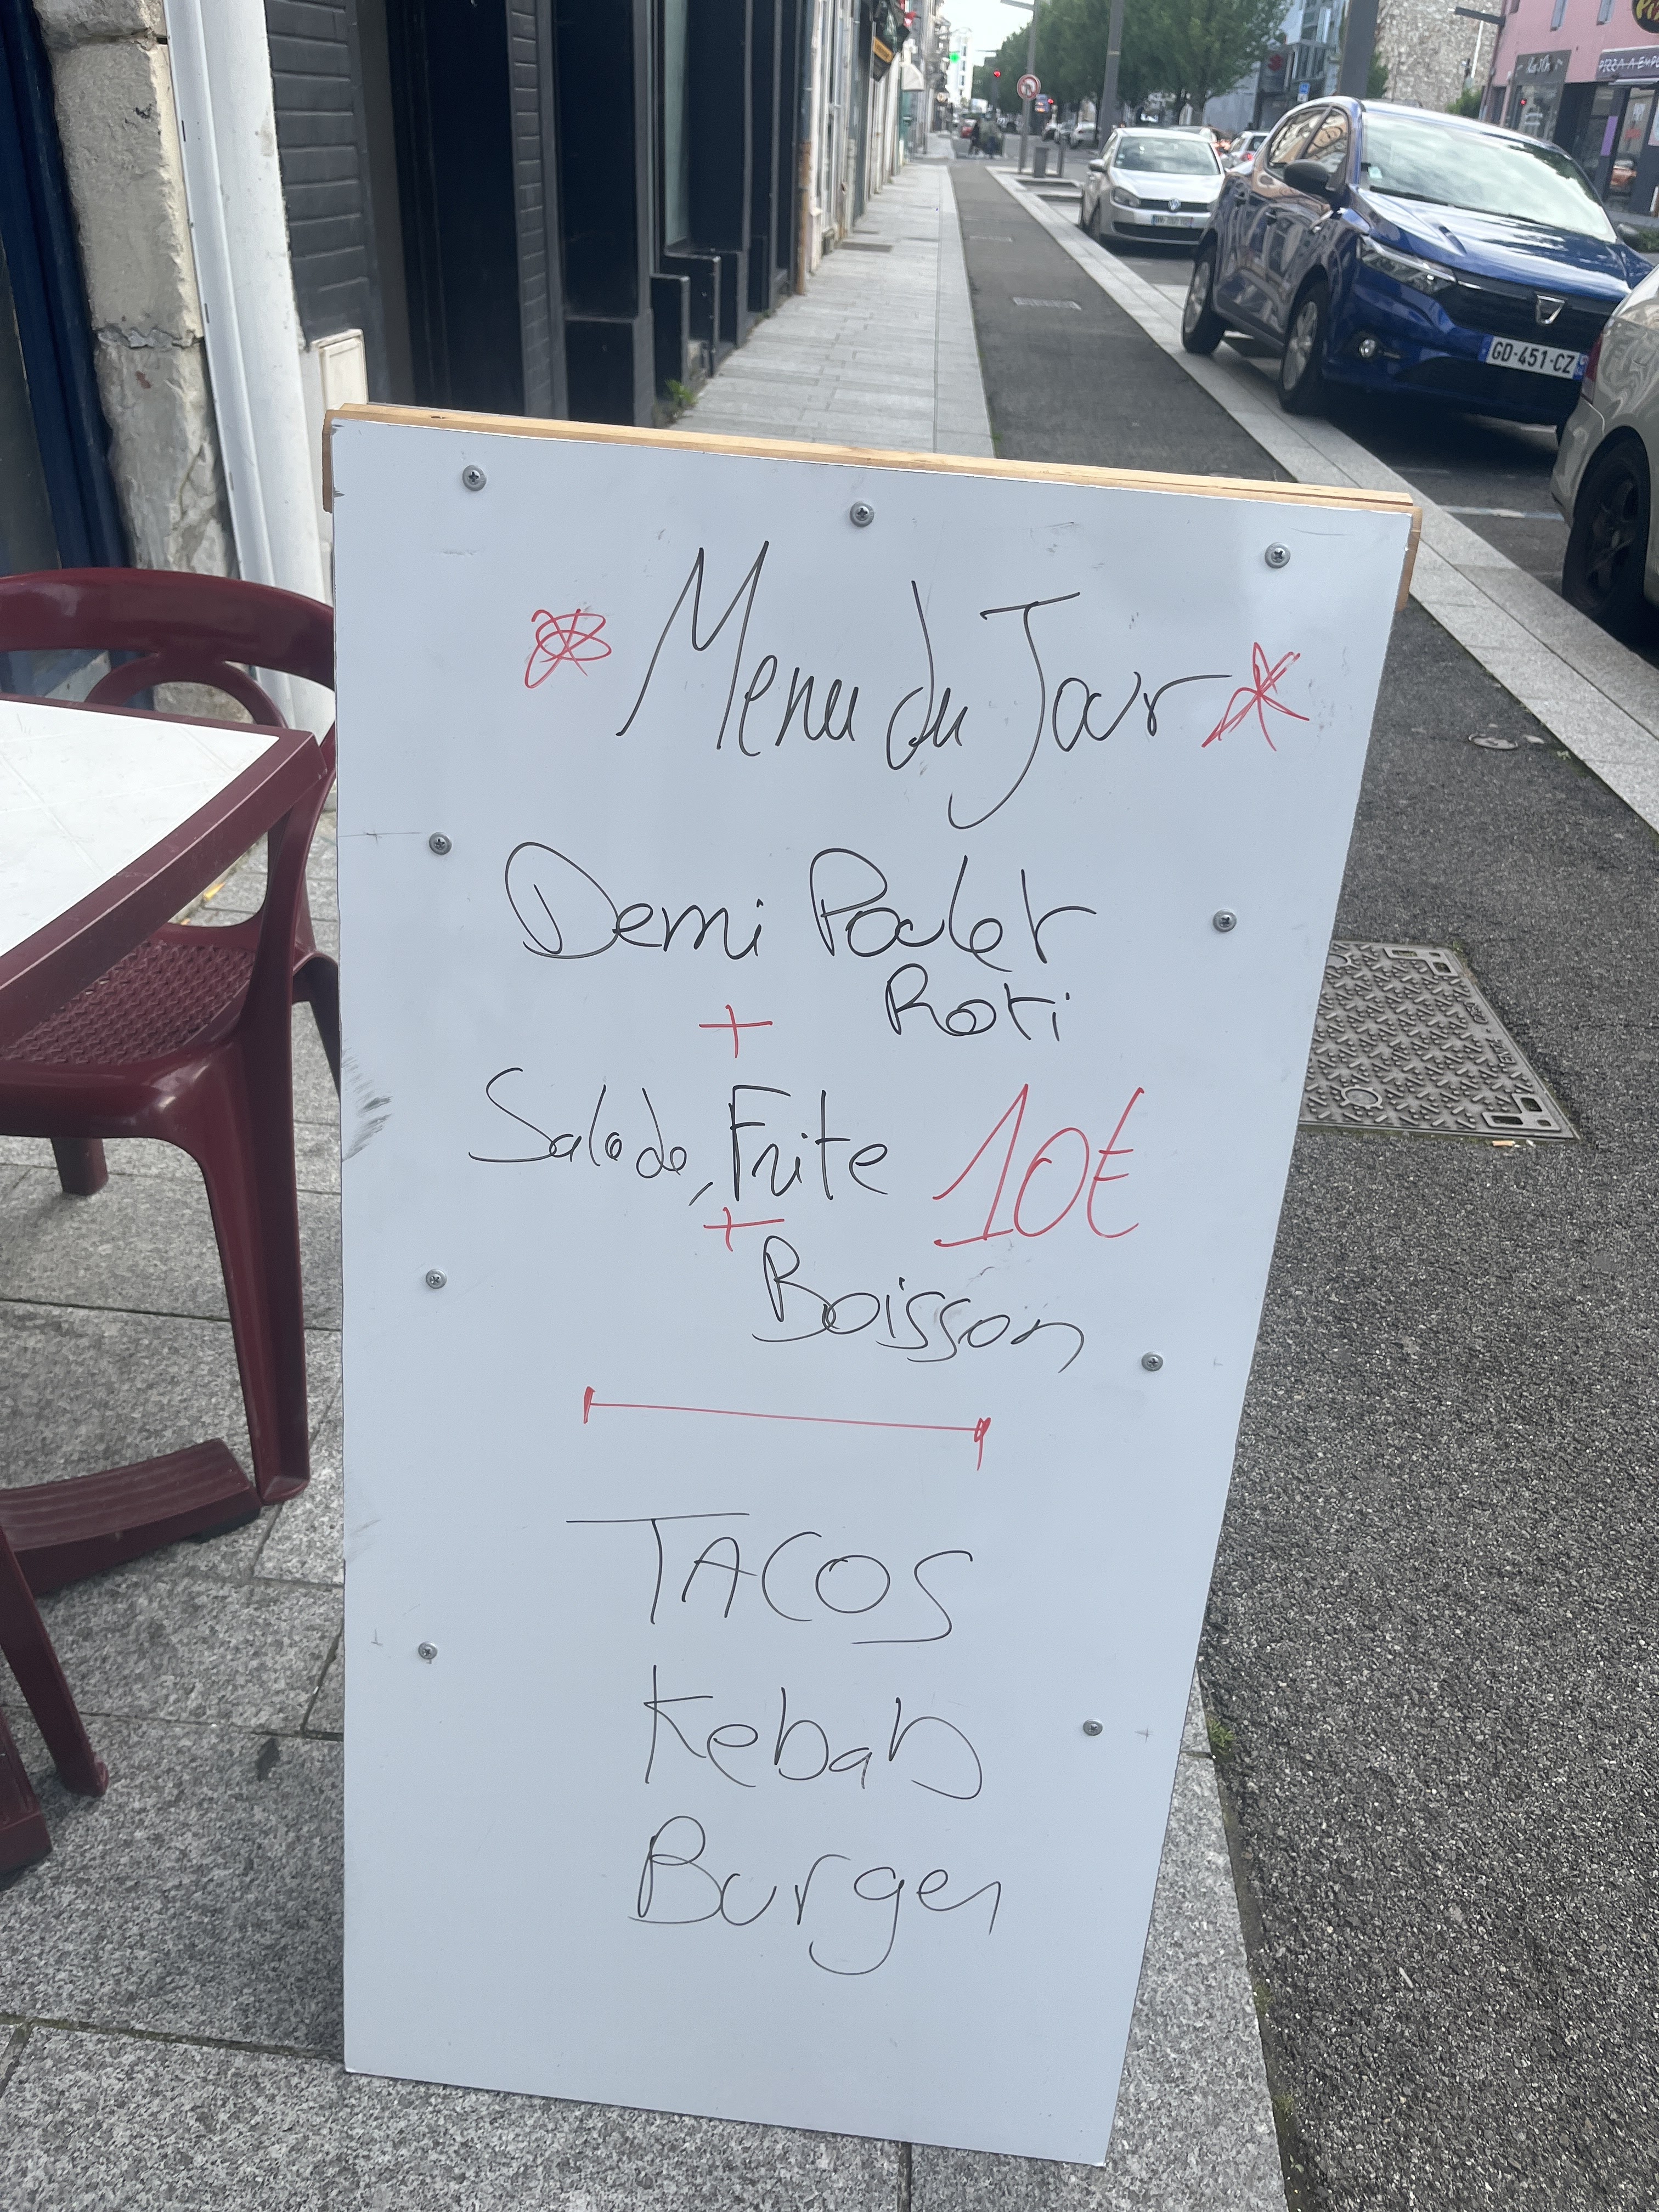 PIZZA A EMPO
GD-451-CZ
Menu du Jour
Demi Poulet
Roti
+
Salade, Frite 10€
+
Boisson
TACOS
Kebab
Burger